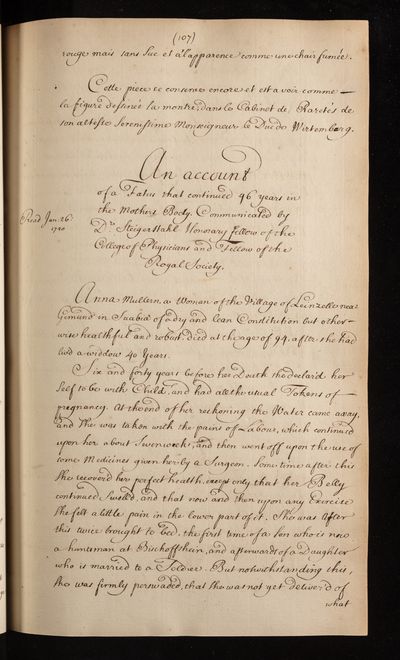 (107)
rouge mais sans suc et à l'apparence comme une chair fumée.
Cette piece se conserve encore et est a voir comme —
la figure designée la montre, dans le Cabinet de Raretés de
son altesse Serenissime Monseigneur le Duc de Wirtemberg.
An account
of a Fœtus that continued 46 years in
the Mothers Body. Communicated by
Dr. Steigertahl Honorary Fellow of the
College of Physicians and Fellow of the
Royal Society.
Read Jan: 26.
1720
Anna Mullern, a Woman of the Village of Leinzelle near
Gemund in Suabia of a dry and lean Constitution but other=
wise healthful and robust, died at the age of 94. after she had
liv'd a widdow 40 Years.
Six and forty years before her Death she declar'd her
self to be with Child, and had all the usual Tokens of —
pregnancy. At the end of her reckoning the Water came away,
and she was taken with the pains of Labour, which continued
upon her about seven weeks, and then went off upon the use of
some Medicines given her by a Surgeon. Some time after this
she recover'd her perfect health, except only that her Belly
continued Swell'd and that now and then upon any Exercise
she felt a little pain in the lower part of it. She was after
this twice brought to bed, the first time of a Son who is now
a huntsman at Bischoffshein, and afterwards of a Daughter
who is married to a Soldier. But notwithstanding this,
she was firmly perswaded, that she was not yet deliver'd of
what